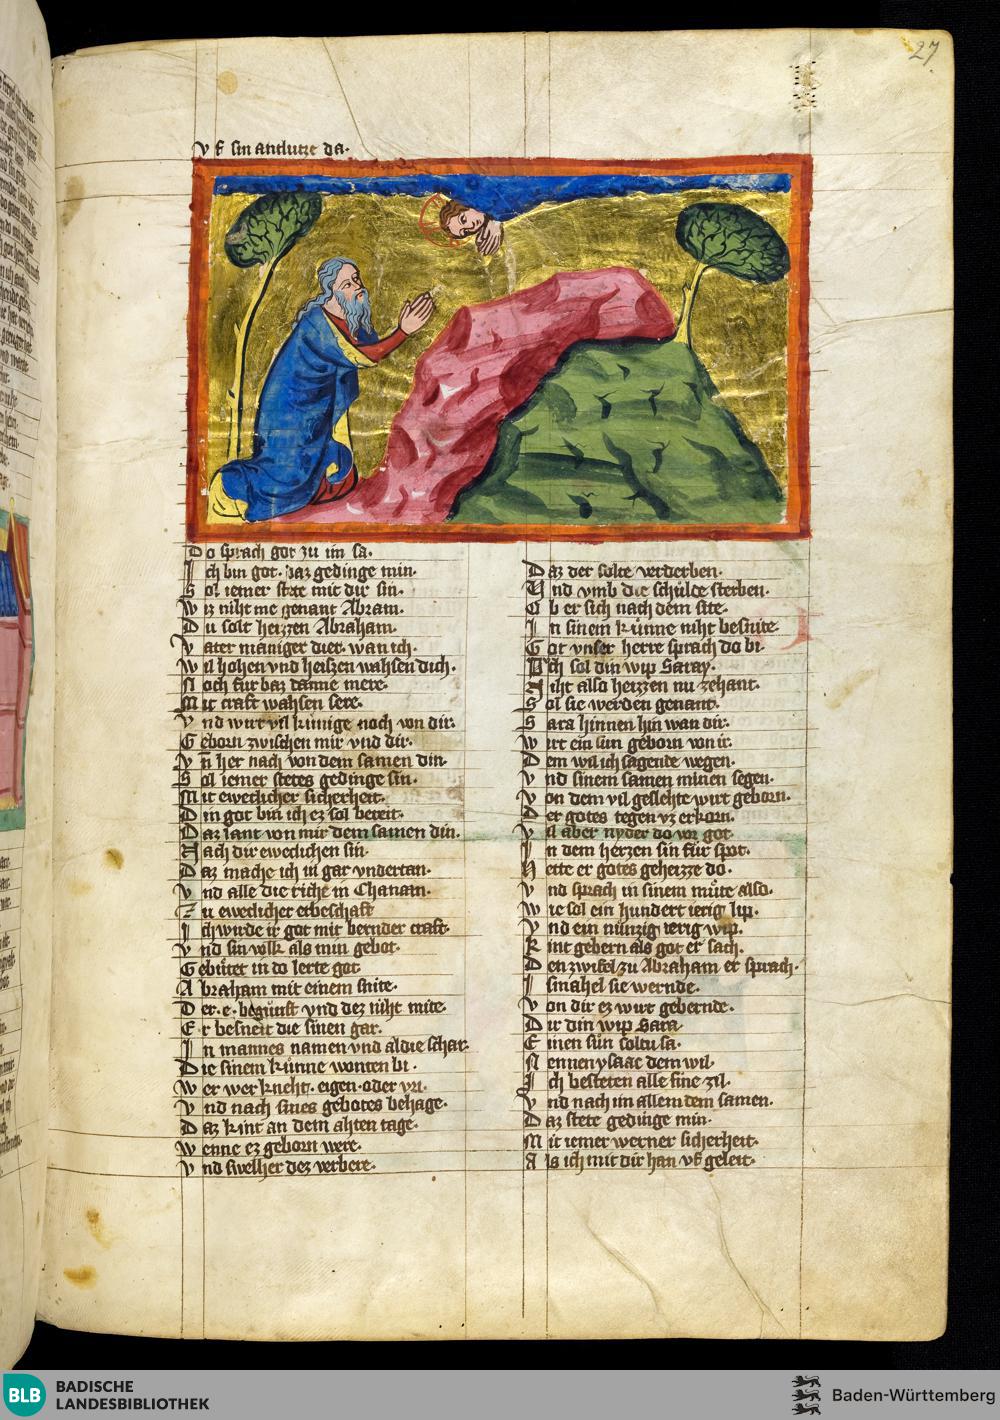 27
vf sin antlutze da.
Do sprach got zu im sa.
Ich bin got. daz gedinge min.
Sol iemer stete mit dir sin.
Wiz niht me genant Abram.
Du solt heizzen Abraham.
Vater maniger diet. wan ich.
Wil hohen vnd heizzen wahsen dich.
Noch fur baz danne mere.
Mit craft wahsen sere.
Vnd wirt vil kunige noch von dir.
Geborn zwischen mir vnd dir.
Vn her nach von dem samen din.
Sol iemer stetes gedinge sin.
Mit eweclicher sicherheit.
Din got bin ich ez sol bereit.
Daz lant von mir dem samen din.
Nach dir eweclichen sin.
Daz mache ich in gar vndertan.
Vnd alle die riche in Chanaan.
Zu eweclicher erbeschaft
Ich wirde ir got mit bernder craft.
Vnd sin volk als min gebot.
Gebutet in do lerte got
Abraham mit einem snite.
Der .e. begunst vnd dez niht mite.
Er besneit die sinen gar.
In mannes namen vnd al die schar.
Die sinem kunne wonten bi.
Wer wer kneht. eigen. oder vri.
Vnd nach sines gebotes behage.
Daz kint an dem ahten tage.
Wenne ez geborn were.
Vnd swelher dez verbere.
Daz der solte verderben.
Vnd vmb die schulde sterben.
Ob er sich nach dem site.
In sinem kunne niht besnite.
Got vnser herre sprach do bi.
Ich sol din wip Saray.
Niht also heizzen nu zehant.
Sol sie werden genant.
Sara hinnen hin wan dir.
Wirt ein sun geborn von ir.
Dem wil ich sagende wegen.
Vnd sinem samen minen segen.
Von dem vil geslehte wirt geborn.
Der gotes tegen vz erkorn.
Vil aber nyder do vor got.
In dem herzen sin fur spot.
Hette er gotes geheizze do.
Vnd sprach in sinem mute also.
Wie sol ein hundert ierig lip.
Vnd ein nunzig ierig wip.
Kint gebern als got er sach.
Den zwifel zu Abraham er sprach.
Ismahel sie wernde.
Von dir ez wirt gebernde.
Dir din wip Sara
Einen sun soltu sa.
Nennen ysaac dem wil.
Ich besteten alle sine zil.
Vnd nach im allem dem samen.
Daz stete gedinge min.
Mit iemer werner sicherheit.
Als ich mit dir han vf geleit.
BLB
BADISCHE
LANDESBIBLIOTHEK
Baden-Württemberg